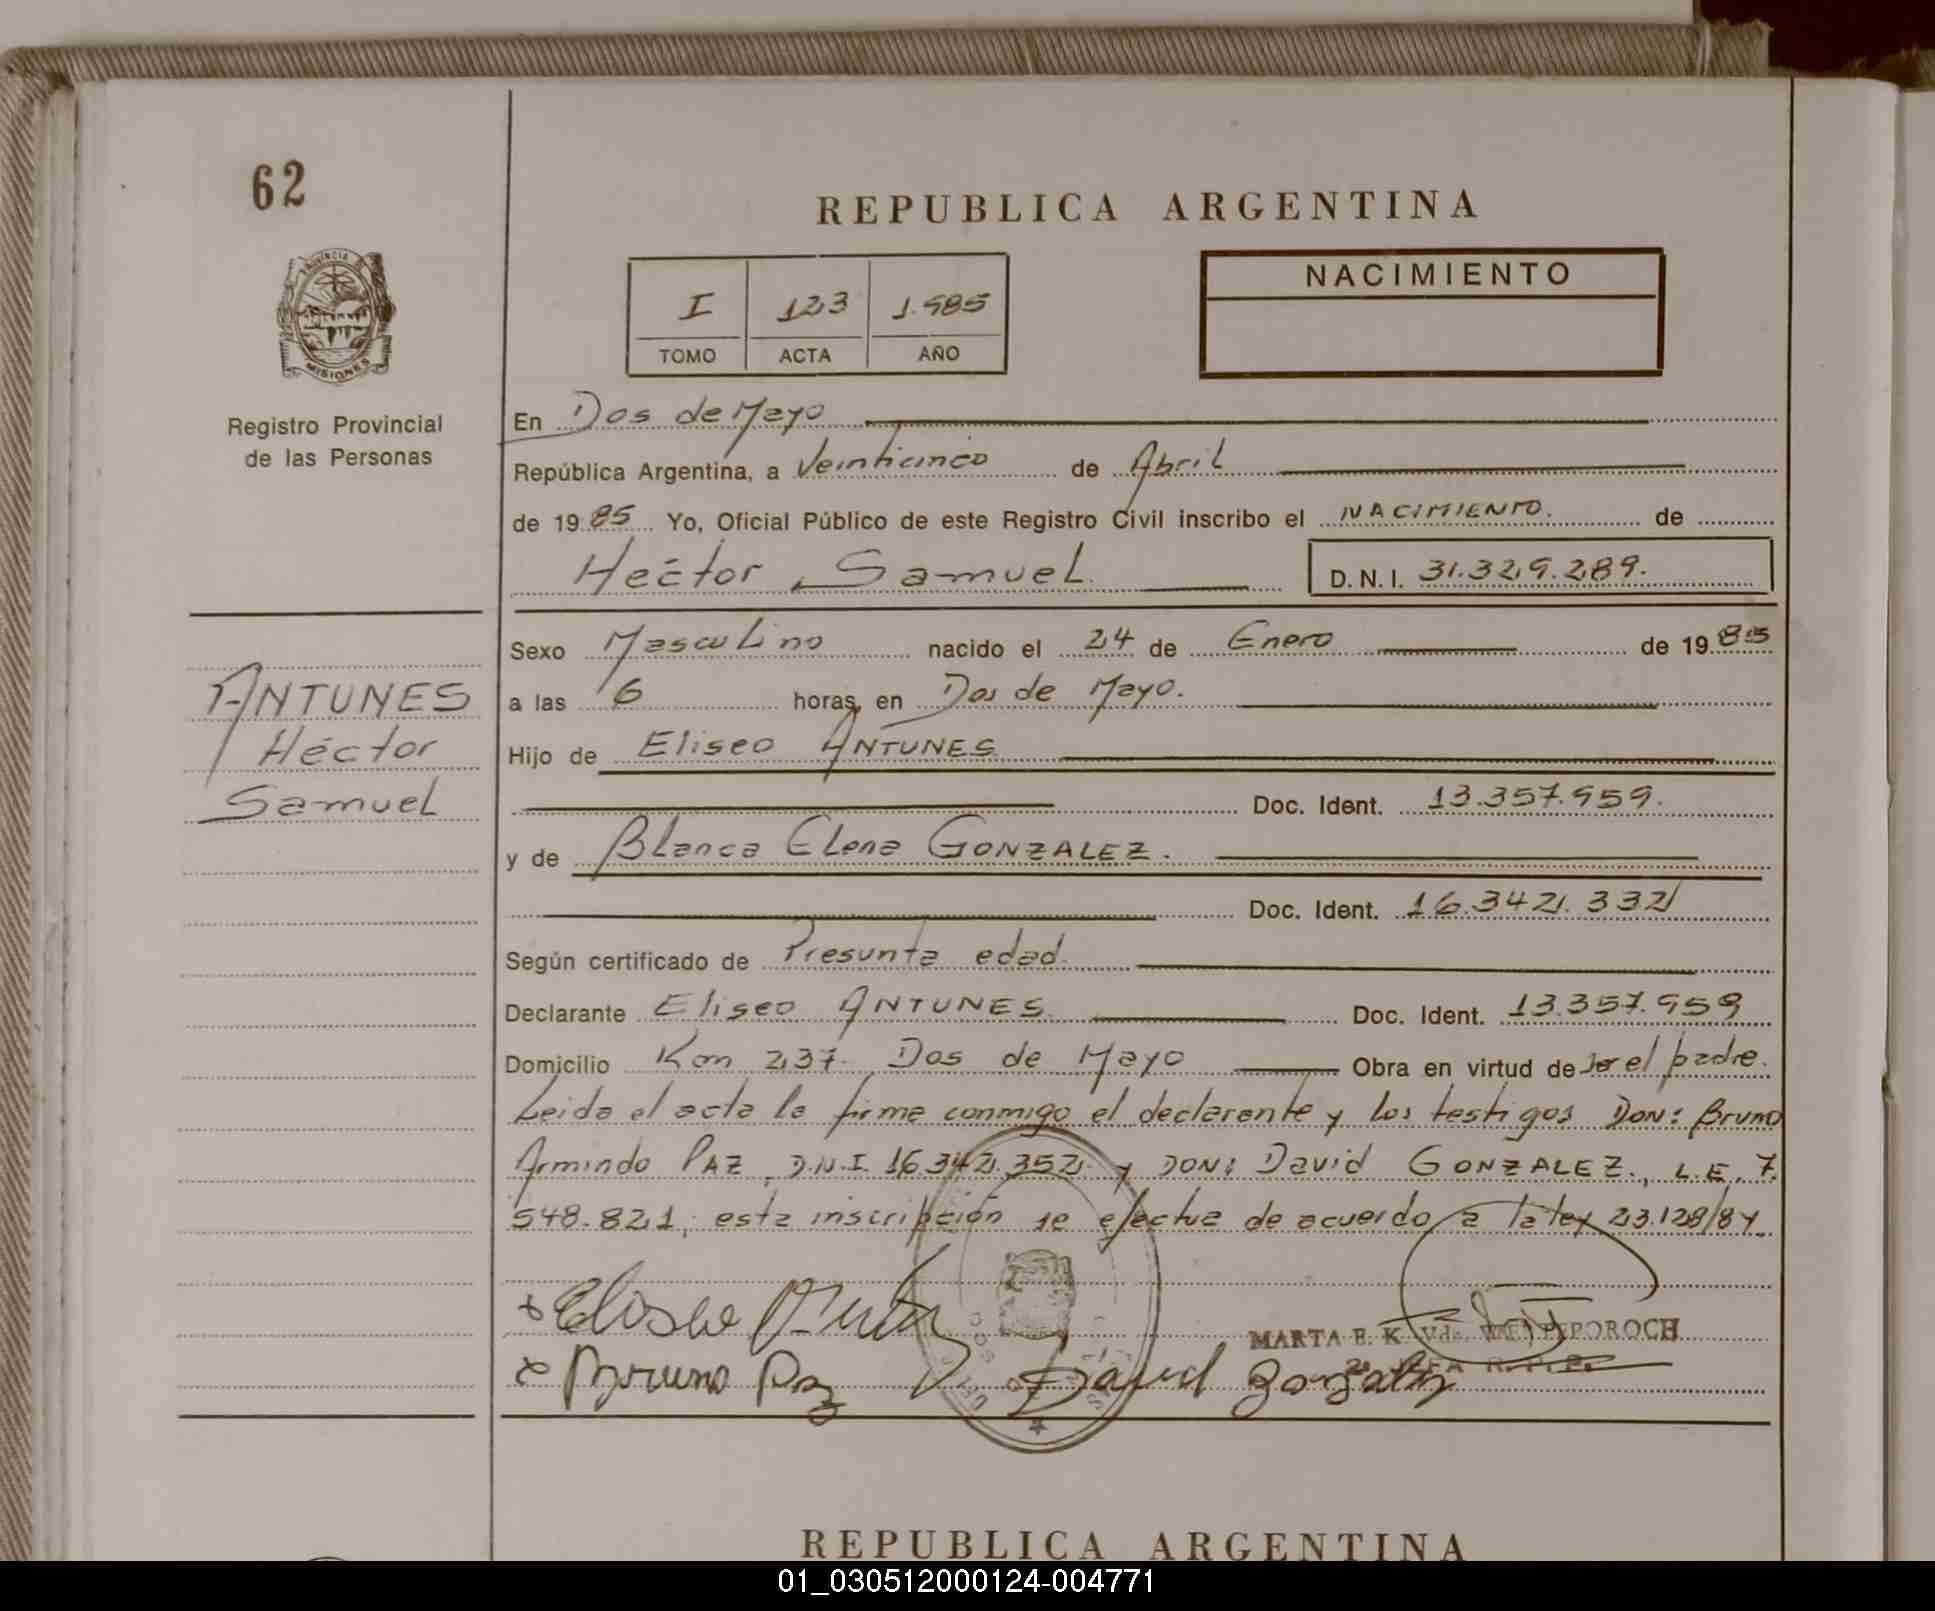 62
REPUBLICA ARGENTINA
PROVINCIA DE
MISIONES
Registro Provincial
de las Personas
I 123 1.985
TOMO ACTA AÑO
NACIMIENTO
En Dos de Mayo
República Argentina, a Veinticinco de Abril
de 1985 Yo, Oficial Público de este Registro Civil inscribo el NACIMIENTO. de
Héctor Samuel. D.N.I. 31.329.289.
Sexo Masculino nacido el 24 de Enero de 1985
a las 6 horas, en Dos de Mayo.
Hijo de Eliseo ANTUNES
Doc. Ident. 13.357.959.
y de Blanca Elena GONZALEZ.
Doc. Ident. 16.342.332
Según certificado de Presunta edad.
Declarante Eliseo ANTUNES. Doc. Ident. 13.357.959
Domicilio Km 237. Dos de Mayo Obra en virtud de ser el padre.
Leida el acta la firma conmigo el declarante y los testigos DON: Bruno
Armindo PAZ, D.N.I. 16.342.352 y DON: David GONZALEZ., L.E. 7.
548.821, esta inscripción se efectua de acuerdo a la ley 23.128/84.
ANTUNES
Héctor
Samuel
Eliseo
MARTA E. K. Vda.
JEFA R.P.P.
Bruno Paz David Gonzalez
REPUBLICA ARGENTINA
01_030512000124-004771